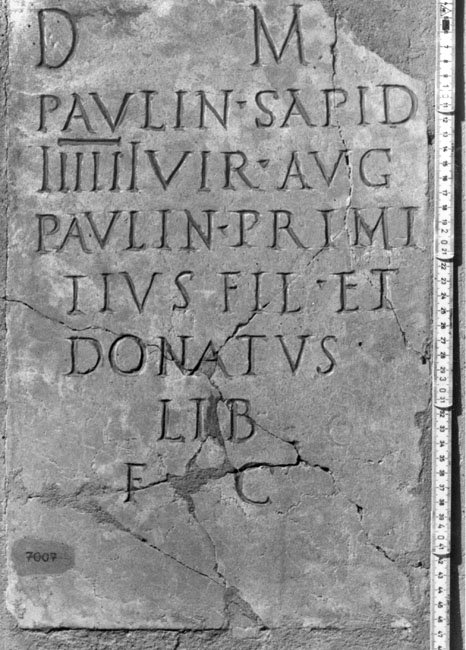 D M
PAVLIN·SAPID
IIIIIIVIR·AVG
PAVLIN·PRIMI
TIVS FIL·ET
DONATVS
LIB
F C
7007